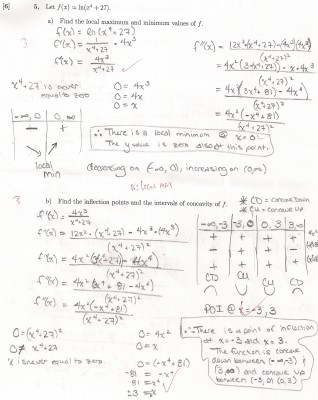 [6] 5. Let f(x) = ln(x⁴ + 27).
a) Find the local maximum and minimum values of f.
3
f(x) = ln(x⁴+27)
f'(x) = 1/(x⁴+27) · 4x³
f'(x) = 4x³/(x⁴+27)
x⁴+27 is never equal to zero
0 = 4x³
0 = 4x
0 = x
-∞, 0 | 0, ∞
- | +
local min
f''(x) = (12x²(x⁴+27) - (4x³)(4x³))/(x⁴+27)²
= 4x²(3(x⁴+27) - 4x⁴)/(x⁴+27)²
= 4x²(3x⁴+81 - 4x⁴)/(x⁴+27)²
= 4x²(-x⁴+81)/(x⁴+27)²
∴ There is a local minimum @ x=0
The y value is zero also at this point.
decreasing on (-∞, 0), increasing on (0,∞)
3
b) Find the inflection points and the intervals of concavity of f.
* CD = Concave Down
* CU = Concave Up
f'(x) = 4x³/(x⁴+27)
f''(x) = (12x²·(x⁴+27) - 4x³·(4x³))/(x⁴+27)²
f''(x) = 4x²(3(x⁴+27) - 4x⁴)/(x⁴+27)²
f''(x) = 4x²(3x⁴+81 - 4x⁴)/(x⁴+27)²
f''(x) = 4x²(-x⁴+81)/(x⁴+27)²
-∞,-3 | -3,0 | 0,3 | 3,∞
+ + + + 4x²
CD CU CU CD
POI @ x=-3,3
0=(x⁴+27)²
0≠ x⁴+27
x is never equal to zero.
0=4x²
0=x
0=(-x⁴+81)
-81 = -x⁴
81 = x⁴
±3 = x
∴ There is a point of inflection
at x=-3 and x=3.
The function is concave
down between (-∞,-3)
(3,∞) and concave up
between (-3,0) (0,3)